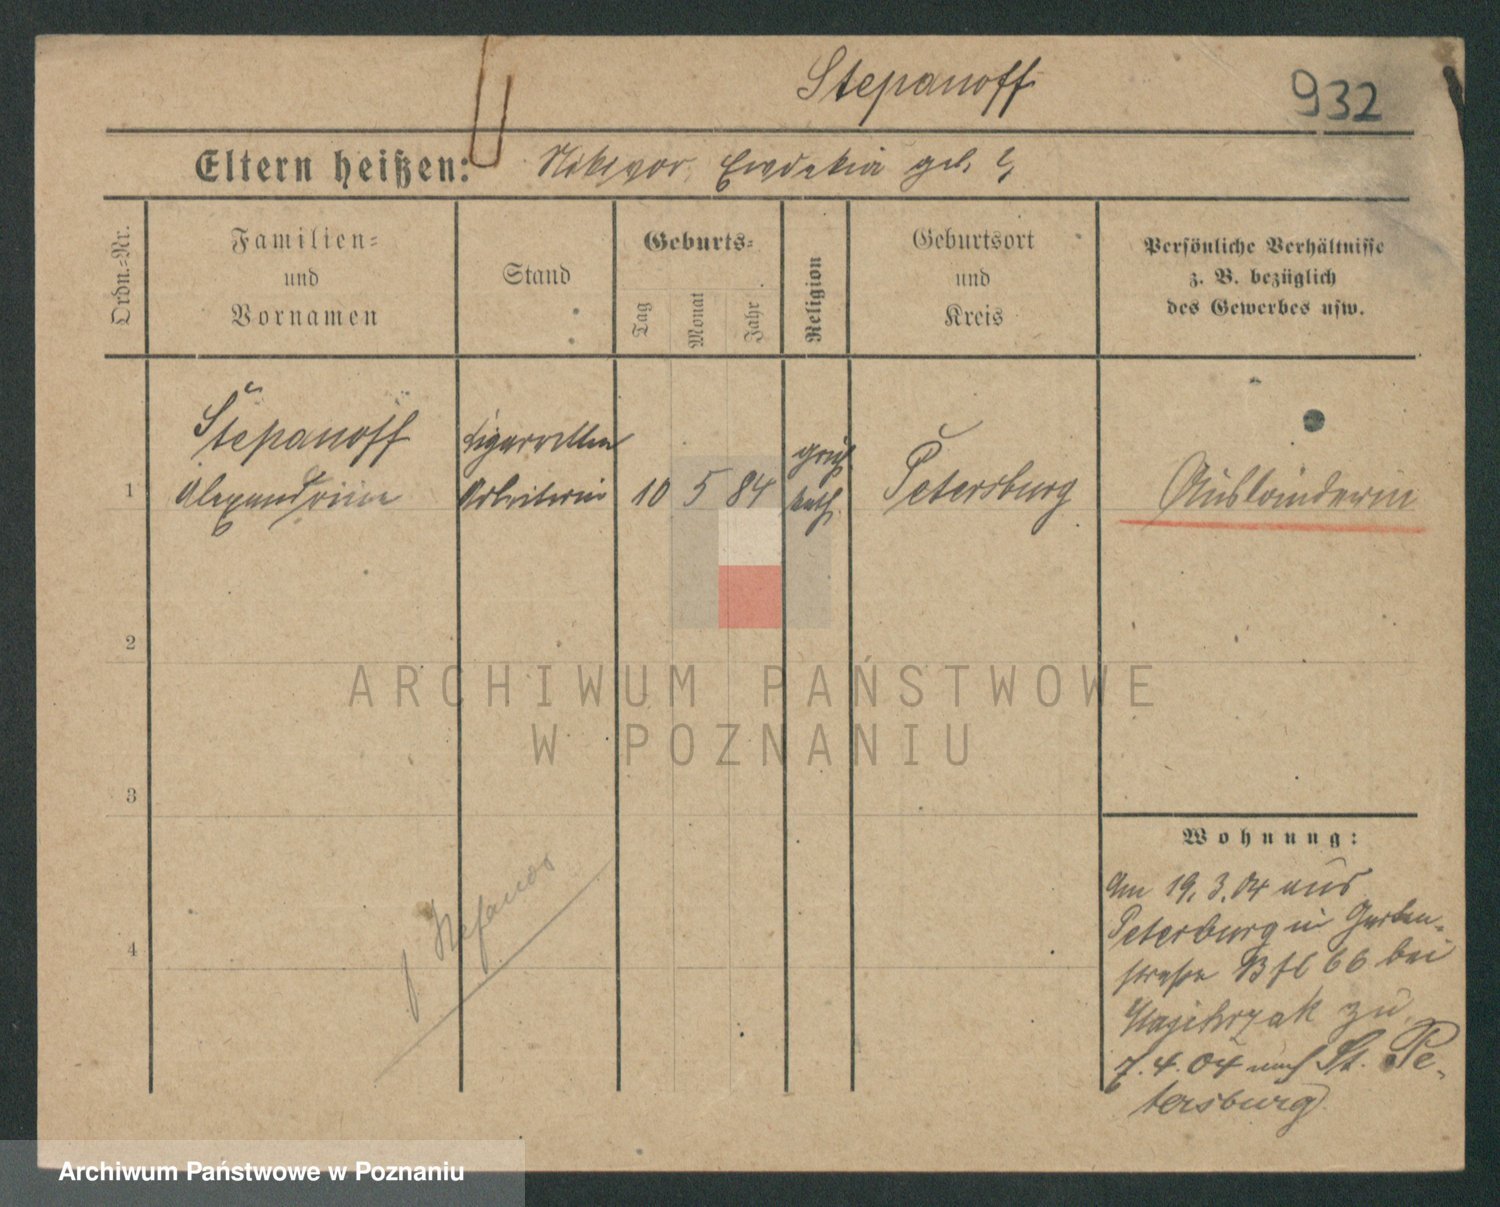 Stepanoff
932
Eltern heißen: Nikivor, Ewdekia geb. ?
Ordn.-Nr.
Familien-
und
Vornamen
Stand
Geburts-
Tag
Monat
Jahr
Religion
Geburtsort
und
Kreis
Persönliche Verhältnisse
z. B. bezüglich
des Gewerbes usw.
1
Stepanoff
Alexandrine
Zigaretten
Arbeiterin
10 5 84
griech
kath.
Petersburg
Ausländerin
2
3
4
Wohnung:
Am 19.3.04 aus
Petersburg in Garten-
straße 66 bei
zu
7.4.04 nach St. Pe-
tersburg
ARCHIWUM PAŃSTWOWE
W POZNANIU
Archiwum Państwowe w Poznaniu